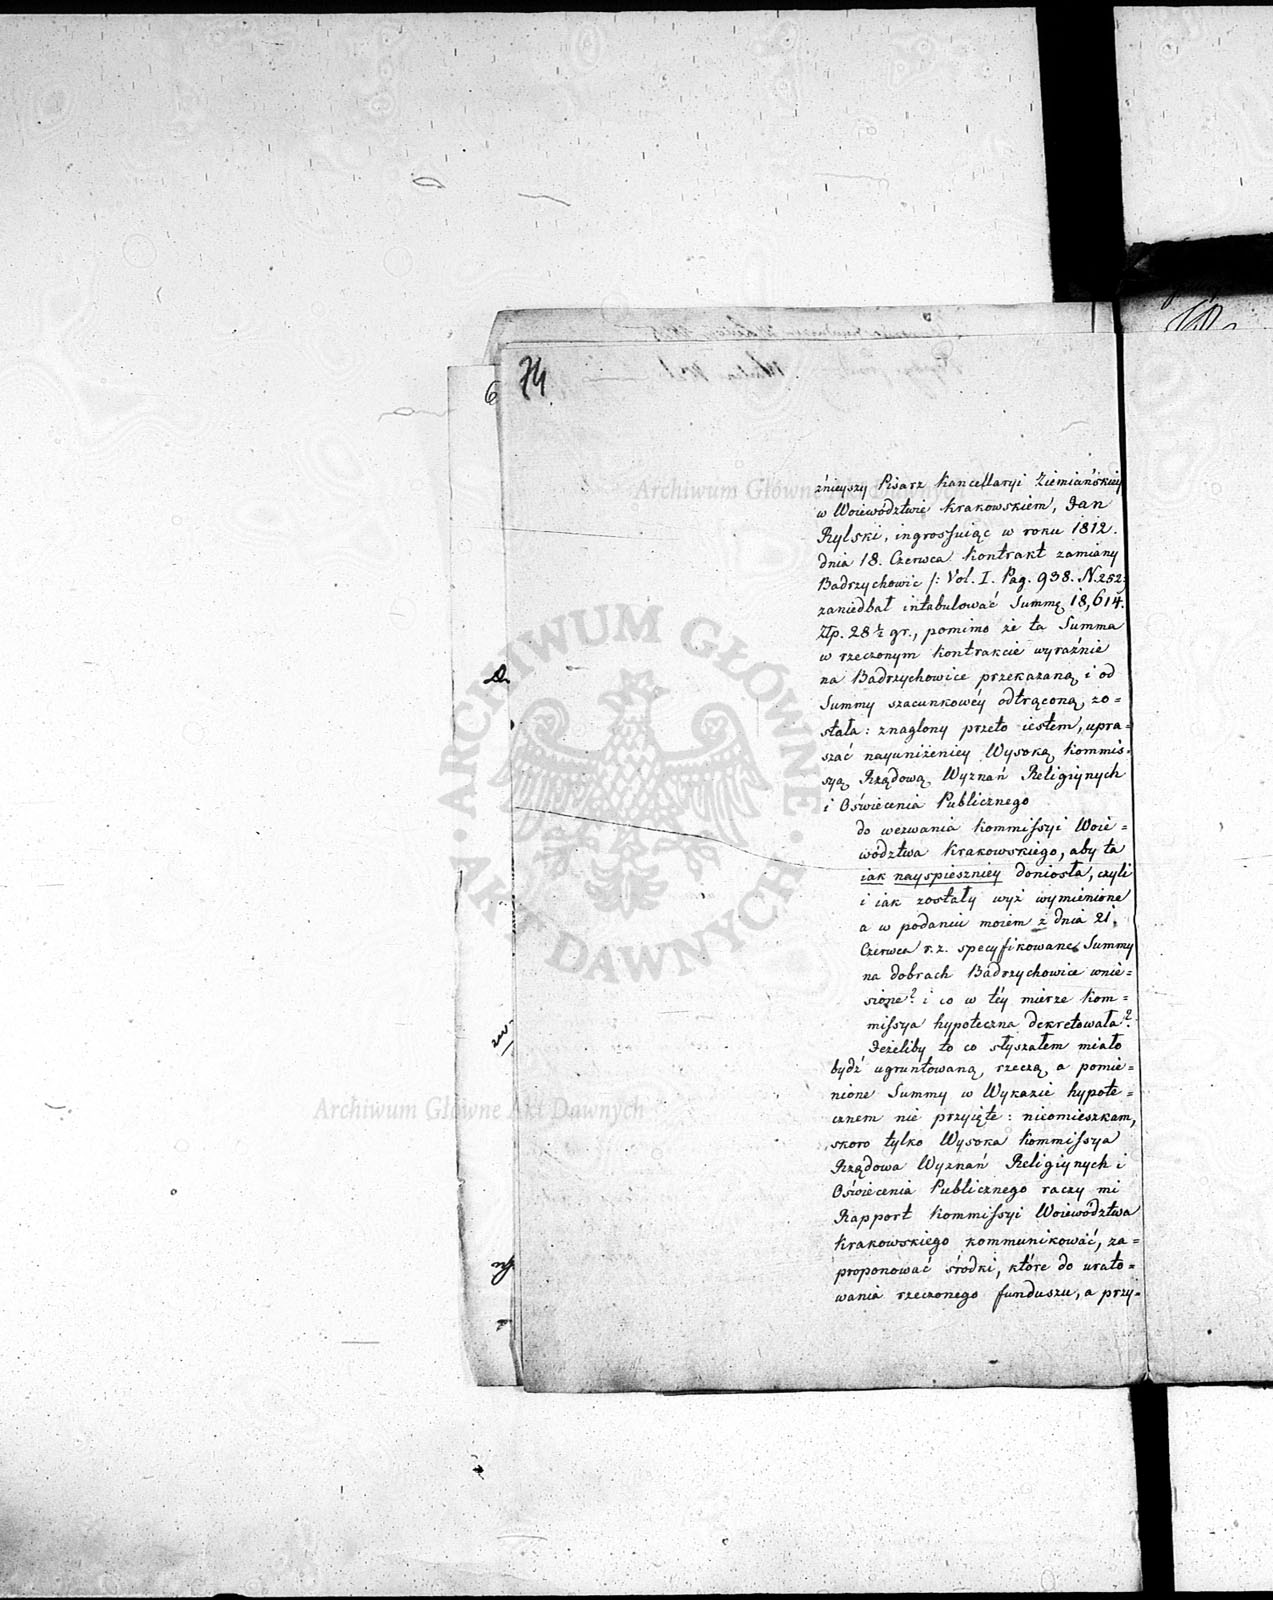 74
źnieyszy Pisarz Kancellaryi Ziemiańskiey
w Woiewództwie Krakowskiem, Jan
Rylski, ingrossuiąc w roku 1812.
dnia 18. Czerwca Kontrakt zamiany
Badrzychowic /: Vol. I. Pag. 938. N. 252:
zaniedbał intabulować Summę 18,614.
Złp. 28 ½ gr., pomimo że ta Summa
w rzeczonym Kontrakcie wyraźnie
na Badrzychowice przekazaną i od
Summy szacunkowéy odtrąconą zo=
stała: znaglony przeto iestem, upra=
szać nayuniżeniey Wysoką Kommis=
syą Rządową Wyznań Religiynych
i Oświecenia Publicznego
do wezwania Kommissyi Woie=
wództwa Krakowskiego, aby ta
iak nayspieszniey doniosła, czyli
i iak zostały wyż wymienione
a w podaniu moiem z dnia 21.
Czerwca r. z. specyfikowane Summy
na dobrach Badrzychowice wnie=
sione? i co w téy mierze Kom=
missya hypoteczna dekretowała?
Jeżeliby to co słyszałem miało
bydź ugruntowaną rzeczą, a pomie=
nione Summy w Wykazie hypote=
cznem nie przyięte: nieomieszkam,
skoro tylko Wysoka Kommissya
Rządowa Wyznań Religiynych i
Oświecenia Publicznego raczy mi
Rapport Kommissyi Woiewództwa
Krakowskiego kommunikować, za=
proponować środki, które do urato=
wania rzeczonego funduszu, a przy=
Archiwum Główne Akt Dawnych
ARCHIWUM GŁÓWNE AKT DAWNYCH
Archiwum Główne Akt Dawnych